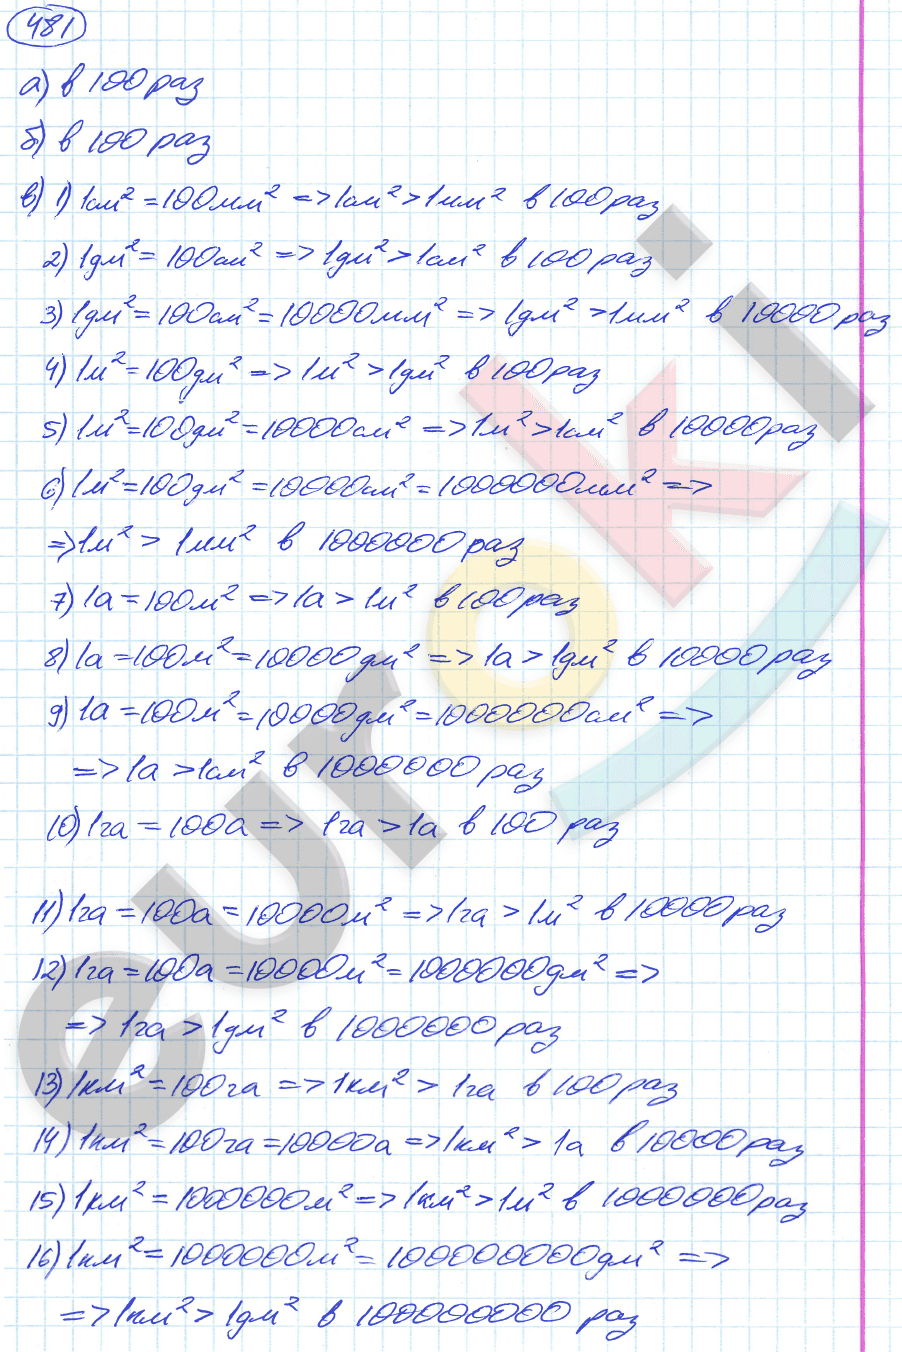 481
а) в 100 раз
б) в 100 раз
в) 1) 1см² = 100мм² => 1см² > 1мм² в 100 раз
2) 1дм² = 100см² => 1дм² > 1см² в 100 раз
3) 1дм² = 100см² = 10000мм² => 1дм² > 1мм² в 10000 раз
4) 1м² = 100дм² => 1м² > 1дм² в 100 раз
5) 1м² = 100дм² = 10000см² => 1м² > 1см² в 10000 раз
6) 1м² = 100дм² = 10000см² = 1000000мм² =>
=> 1м² > 1мм² в 1000000 раз
7) 1а = 100м² => 1а > 1м² в 100 раз
8) 1а = 100м² = 10000дм² => 1а > 1дм² в 10000 раз
9) 1а = 100м² = 10000дм² = 1000000см² =>
=> 1а > 1см² в 1000000 раз
10) 1га = 100а => 1га > 1а в 100 раз
11) 1га = 100а = 10000м² => 1га > 1м² в 10000 раз
12) 1га = 100а = 10000м² = 1000000дм² =>
=> 1га > 1дм² в 1000000 раз
13) 1км² = 100га => 1км² > 1га в 100 раз
14) 1км² = 100га = 10000а => 1км² > 1а в 10000 раз
15) 1км² = 1000000м² => 1км² > 1м² в 1000000 раз
16) 1км² = 1000000м² = 100000000дм² =>
=> 1км² > 1дм² в 100000000 раз
euroki